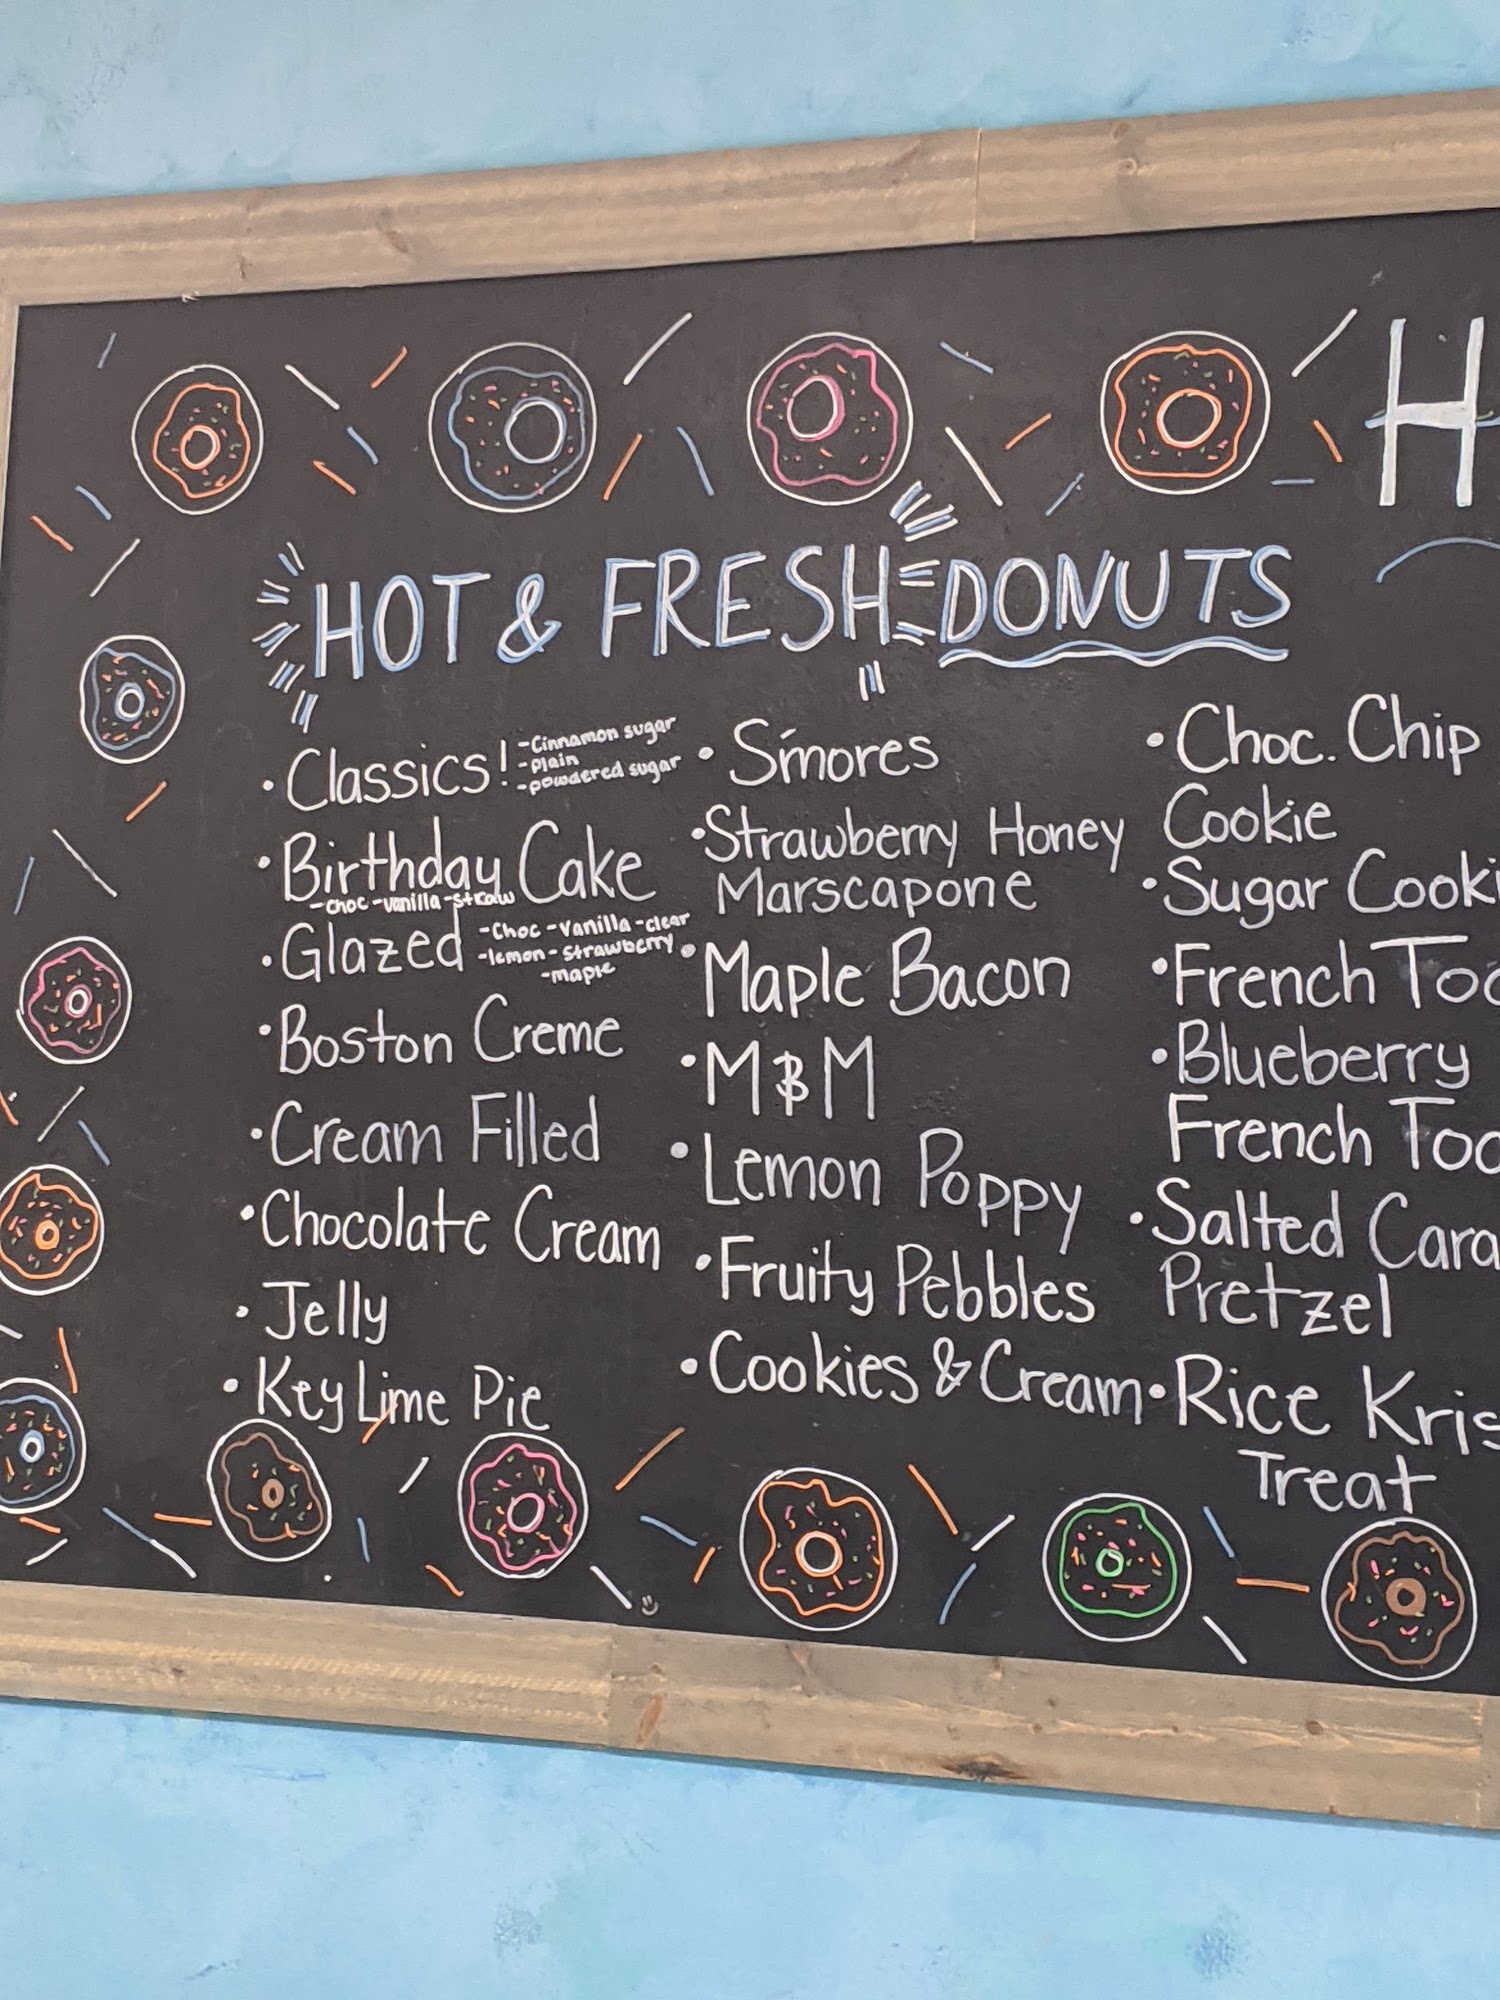 H
HOT & FRESH DONUTS
• Classics! -Cinnamon sugar
-plain
-powdered sugar
• Birthday Cake
-choc -vanilla -straw
• Glazed -Choc -Vanilla -clear
-lemon -strawberry
-maple
• Boston Creme
• Cream Filled
• Chocolate Cream
• Jelly
• Key Lime Pie
• S'mores
• Strawberry Honey
Marscapone
• Maple Bacon
• M&M
• Lemon Poppy
• Fruity Pebbles
• Cookies & Cream
• Choc. Chip
Cookie
• Sugar Cooki
• French Toa
• Blueberry
French Toa
• Salted Cara
Pretzel
• Rice Kris
Treat